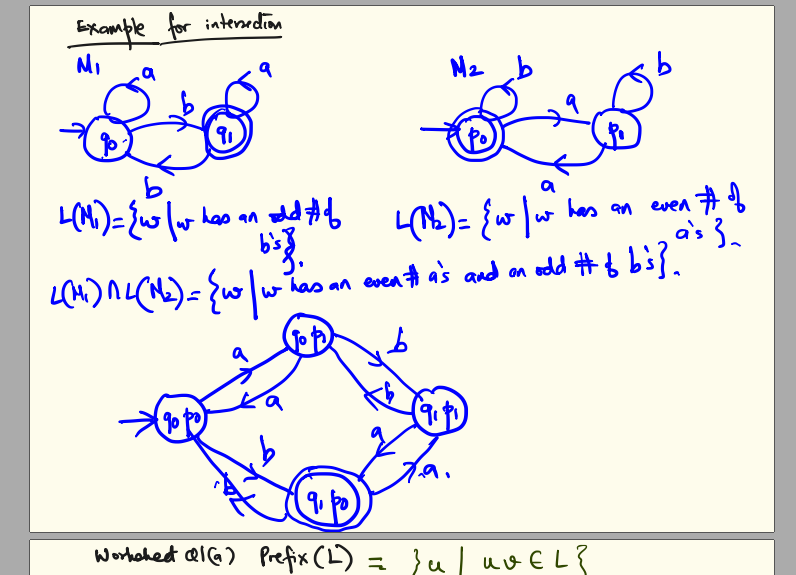 Example for intersection
M1 a a M2 b b
b a
q0 q1 p0 p1
b a
L(M1) = {w | w has an odd # of b's}. L(M2) = {w | w has an even # of a's}.
L(M1) ∩ L(M2) = {w | w has an even # a's and an odd # of b's}.
q0 p1
a b
a b
q0 p0 q1 p1
b a
b a.
q1 p0
Worksheet Q1(a) Prefix(L) = }u | uv ∈ L{